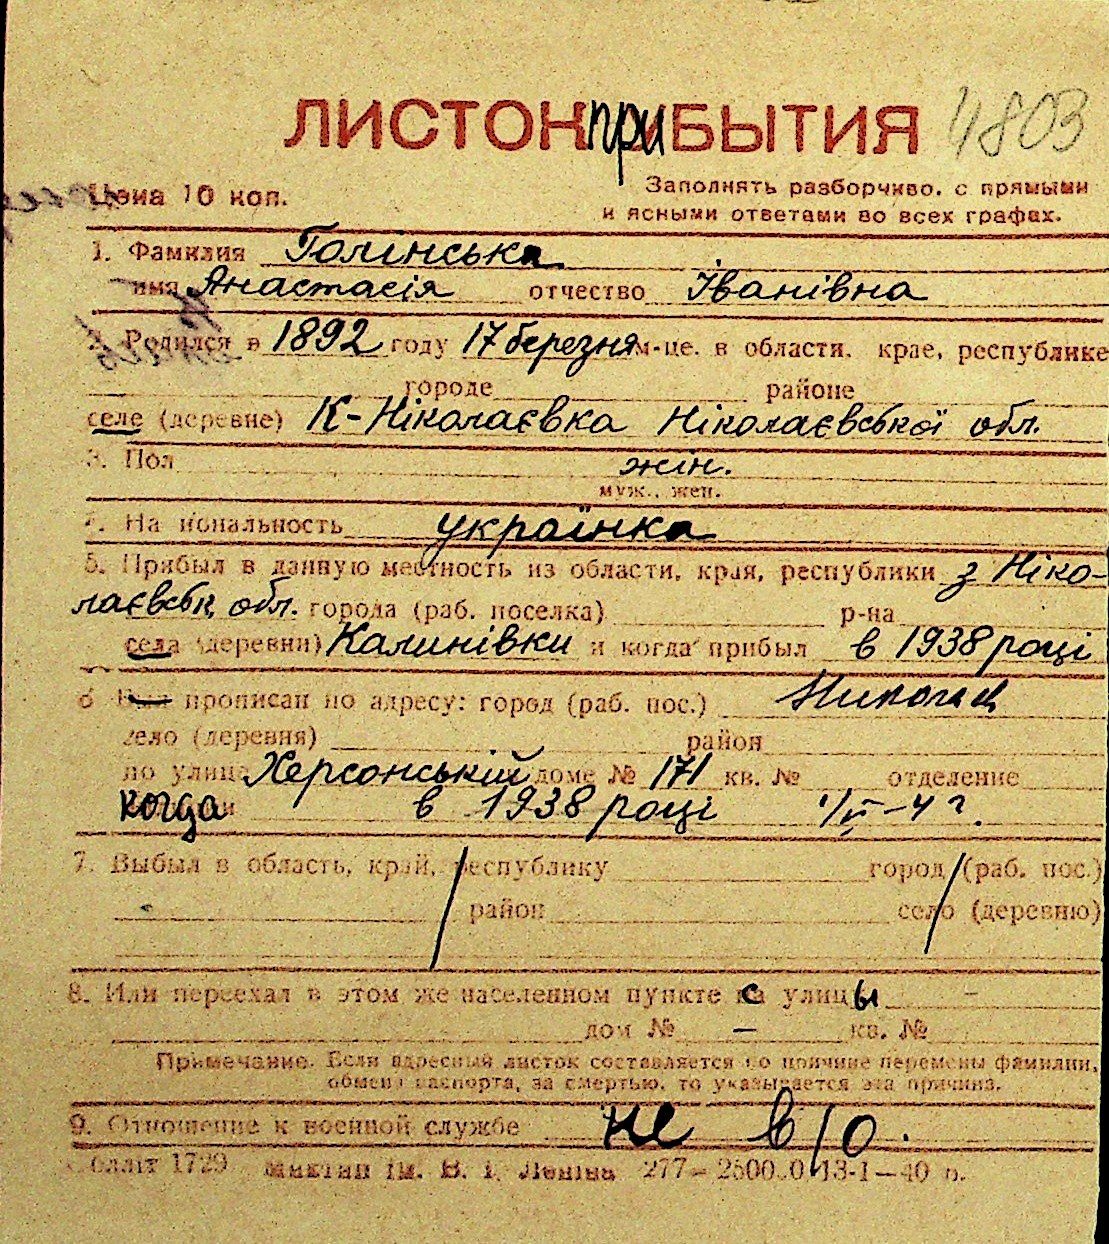 ЛИСТОК прИБЫТИЯ 4803
Цена 10 коп.
Заполнять разборчиво, с прямыми
и ясными ответами во всех графах.
1. Фамилия Голінська
имя Анастасія отчество Іванівна
2. Родился в 1892 году 17 березня м-це. в области, крае, республике
городе районе
селе (деревне) К-Ніколаєвка Ніколаєвської обл.
3. Пол жін.
муж., жен.
4. Национальность українка
5. Прибыл в данную местность из области, края, республики з Ніко-
лаєвськ обл. города (раб. поселка) р-на
села (деревни) Калинівки и когда прибыл в 1938 році
6 прописан по адресу: город (раб. пос.)
село (деревня) район
по улице Херсонській доме № 171 кв. № отделение
когда в 1938 році
7. Выбыл в область, край, республику город (раб. пос.)
район село (деревню)
8. Или переехал в этом же населенном пункте с улицы –
дом № – кв. №
Примечание. Если адресный листок составляется по причине перемены фамилии,
обмена паспорта, за смертью, то указывается эта причина.
9. Отношение к военной службе не в/о.
Облліт 1729 ім. В. І. Леніна 277– 13-1–40 р.